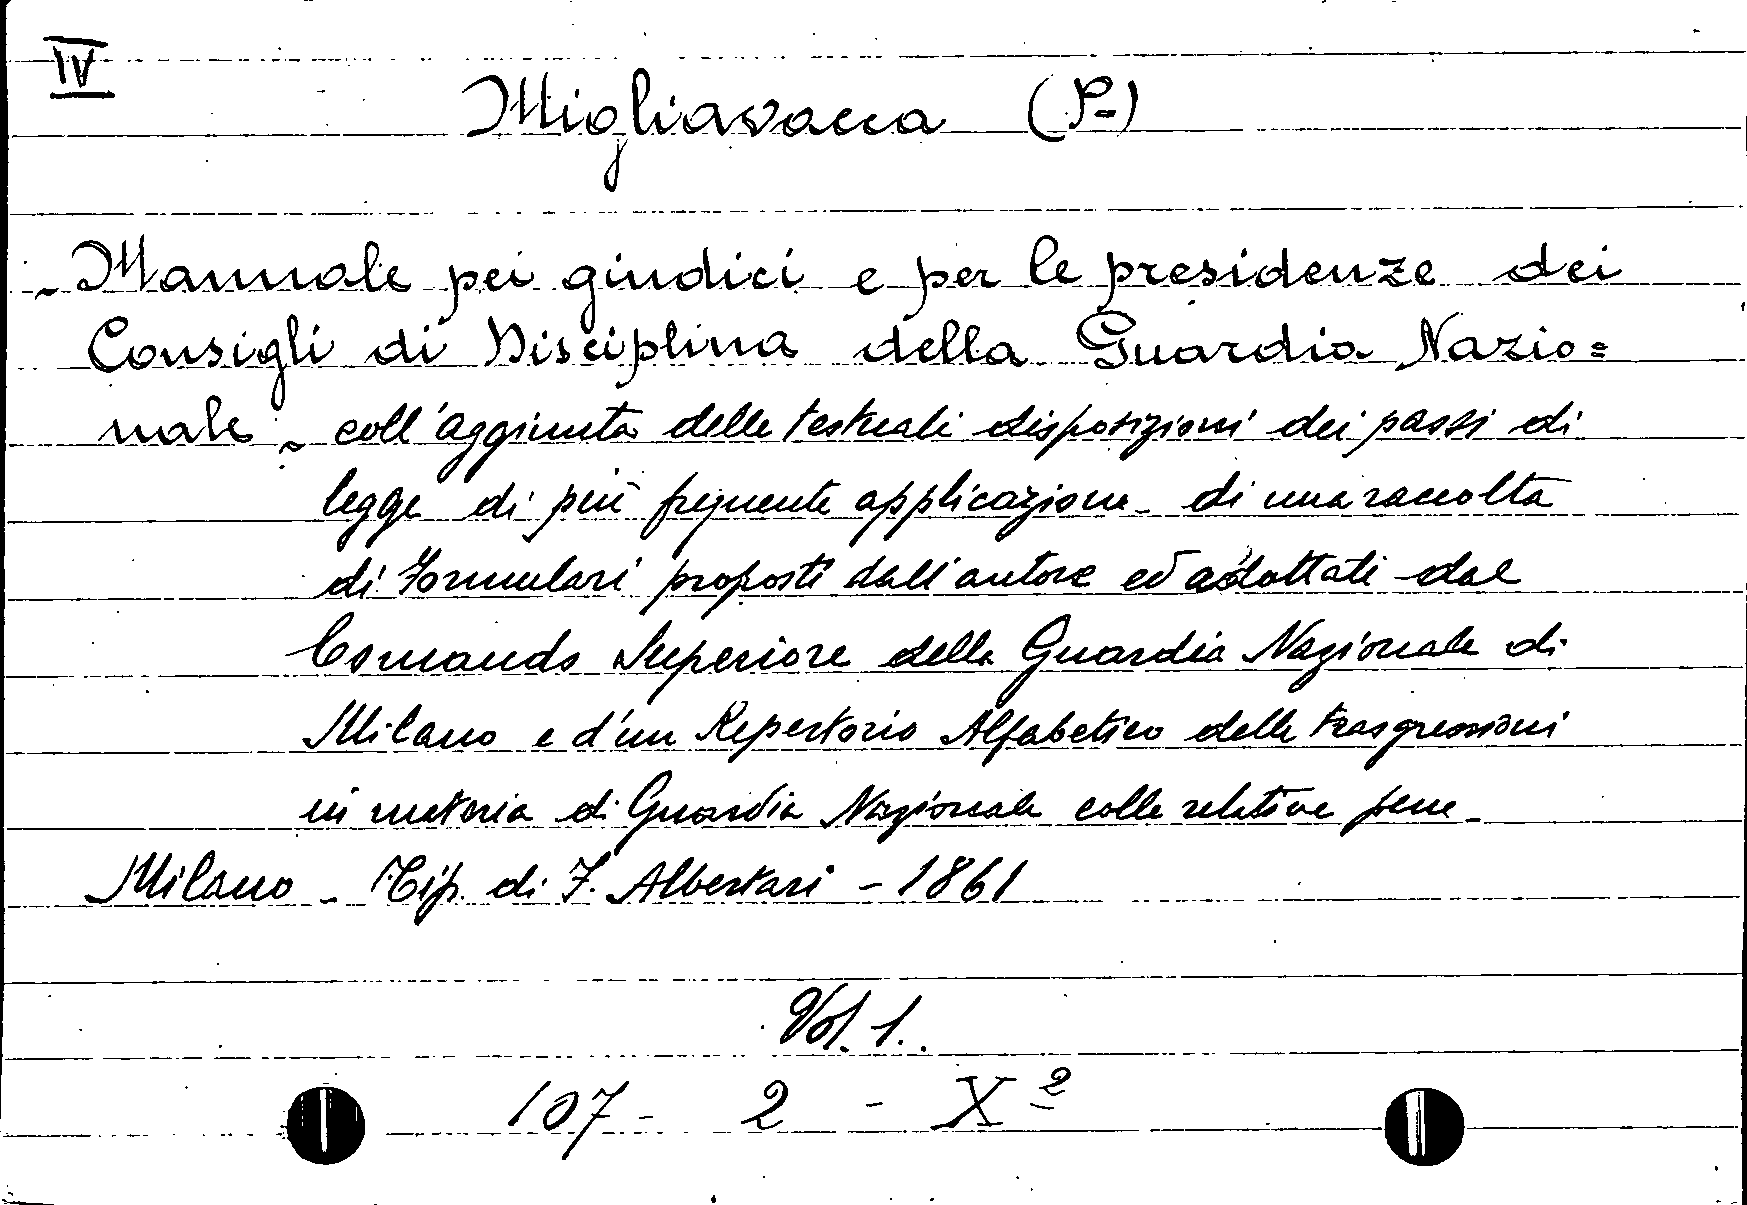 IV
Migliavacca (P.)
- Manuale pei giudici e per le presidenze dei
Consigli di Disciplina della Guardia Nazio=
nale - coll'aggiunta delle testuali disposizioni dei passi di
legge di più frequente applicazione - di una raccolta
di Formulari proposti dall'autore ed adottati dal
Comando Superiore della Guardia Nazionale di
Milano e d'un Repertorio Alfabetico delle trasgressioni
in materia di Guardia Nazionale colle relative pene -
Milano - Tip. di F. Albertari - 1861
Vol. 1.
107 - 2 - X²